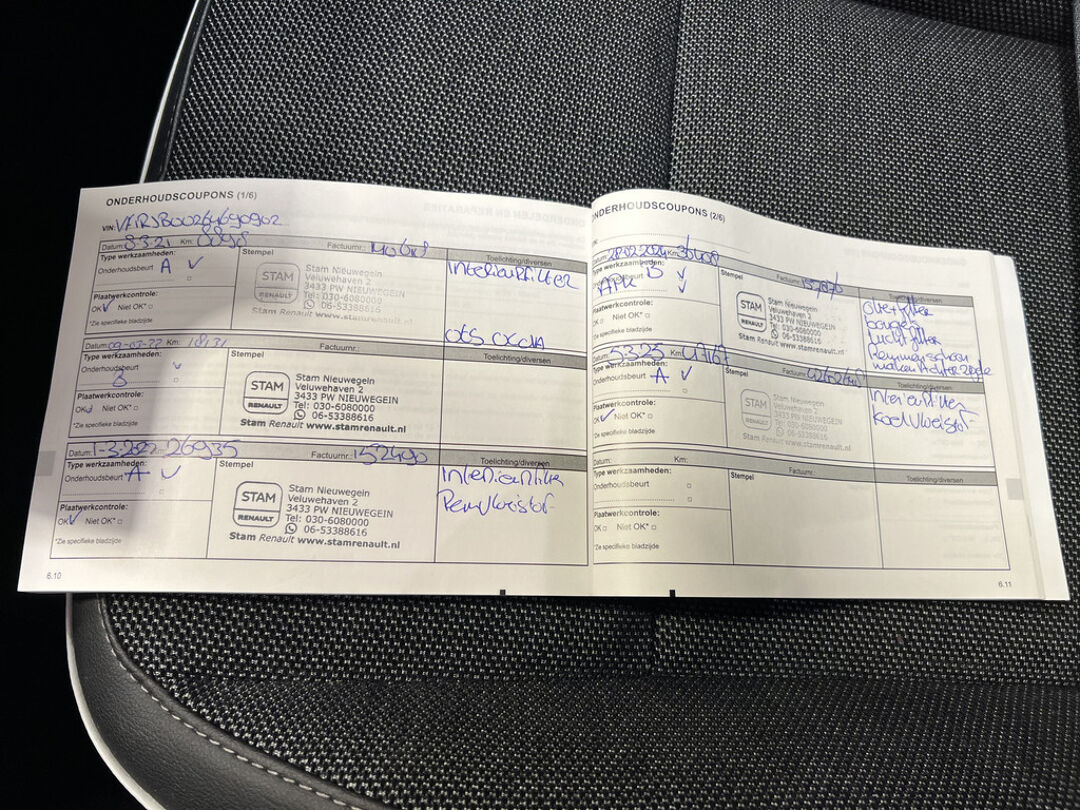 ONDERHOUDSCOUPONS (1/6)
VIN:
Datum: 8-3-21 Km:
Factuurnr.:
Type werkzaamheden:
Stempel
Toelichting/diversen
Onderhoudsbeurt A ✓
Interieurfilter
STAM
RENAULT
Stam Nieuwegein
Veluwehaven 2
3433 PW NIEUWEGEIN
Tel: 030-6080000
06-53388616
Stam Renault www.stamrenault.nl
Plaatwerkcontrole:
OK ✓ Niet OK*
*Zie specifieke bladzijde
Datum: 09-03-22 Km: 18131
Factuurnr.:
Type werkzaamheden:
Stempel
Toelichting/diversen
Onderhoudsbeurt ✓
B
STAM
RENAULT
Stam Nieuwegein
Veluwehaven 2
3433 PW NIEUWEGEIN
Tel: 030-6080000
06-53388616
Stam Renault www.stamrenault.nl
Plaatwerkcontrole:
OK Niet OK*
*Zie specifieke bladzijde
26935
Factuurnr.: 152490
Type werkzaamheden:
Stempel
Toelichting/diversen
Onderhoudsbeurt A ✓
Interieurfilter
Remvloeistof
STAM
RENAULT
Stam Nieuwegein
Veluwehaven 2
3433 PW NIEUWEGEIN
Tel: 030-6080000
06-53388616
Stam Renault www.stamrenault.nl
Plaatwerkcontrole:
OK ✓ Niet OK*
*Zie specifieke bladzijde
6.10
ONDERHOUDSCOUPONS (2/6)
Datum: 28-02-2024 Km:
Factuurnr.:
Type werkzaamheden:
Stempel
Toelichting/diversen
B ✓
APK ✓
Oliefilter
bougeën
luchtfilter
Remmen schoon
maken Achterzijde
STAM
RENAULT
Stam Nieuwegein
Veluwehaven 2
3433 PW NIEUWEGEIN
Tel: 030-6080000
06-53388616
Stam Renault www.stamrenault.nl
Plaatwerkcontrole:
OK Niet OK*
*Zie specifieke bladzijde
Datum: 5-3-25 Km: 47167
Factuurnr.:
Type werkzaamheden:
Stempel
Toelichting/diversen
Onderhoudsbeurt A ✓
Interieurfilter
Koelvloeistof
STAM
RENAULT
Stam Nieuwegein
Veluwehaven 2
3433 PW NIEUWEGEIN
Tel: 030-6080000
06-53388616
Stam Renault www.stamrenault.nl
Plaatwerkcontrole:
OK ✓ Niet OK*
*Zie specifieke bladzijde
Datum: Km:
Factuurnr.:
Type werkzaamheden:
Stempel
Toelichting/diversen
Onderhoudsbeurt
Plaatwerkcontrole:
OK Niet OK*
*Zie specifieke bladzijde
6.11